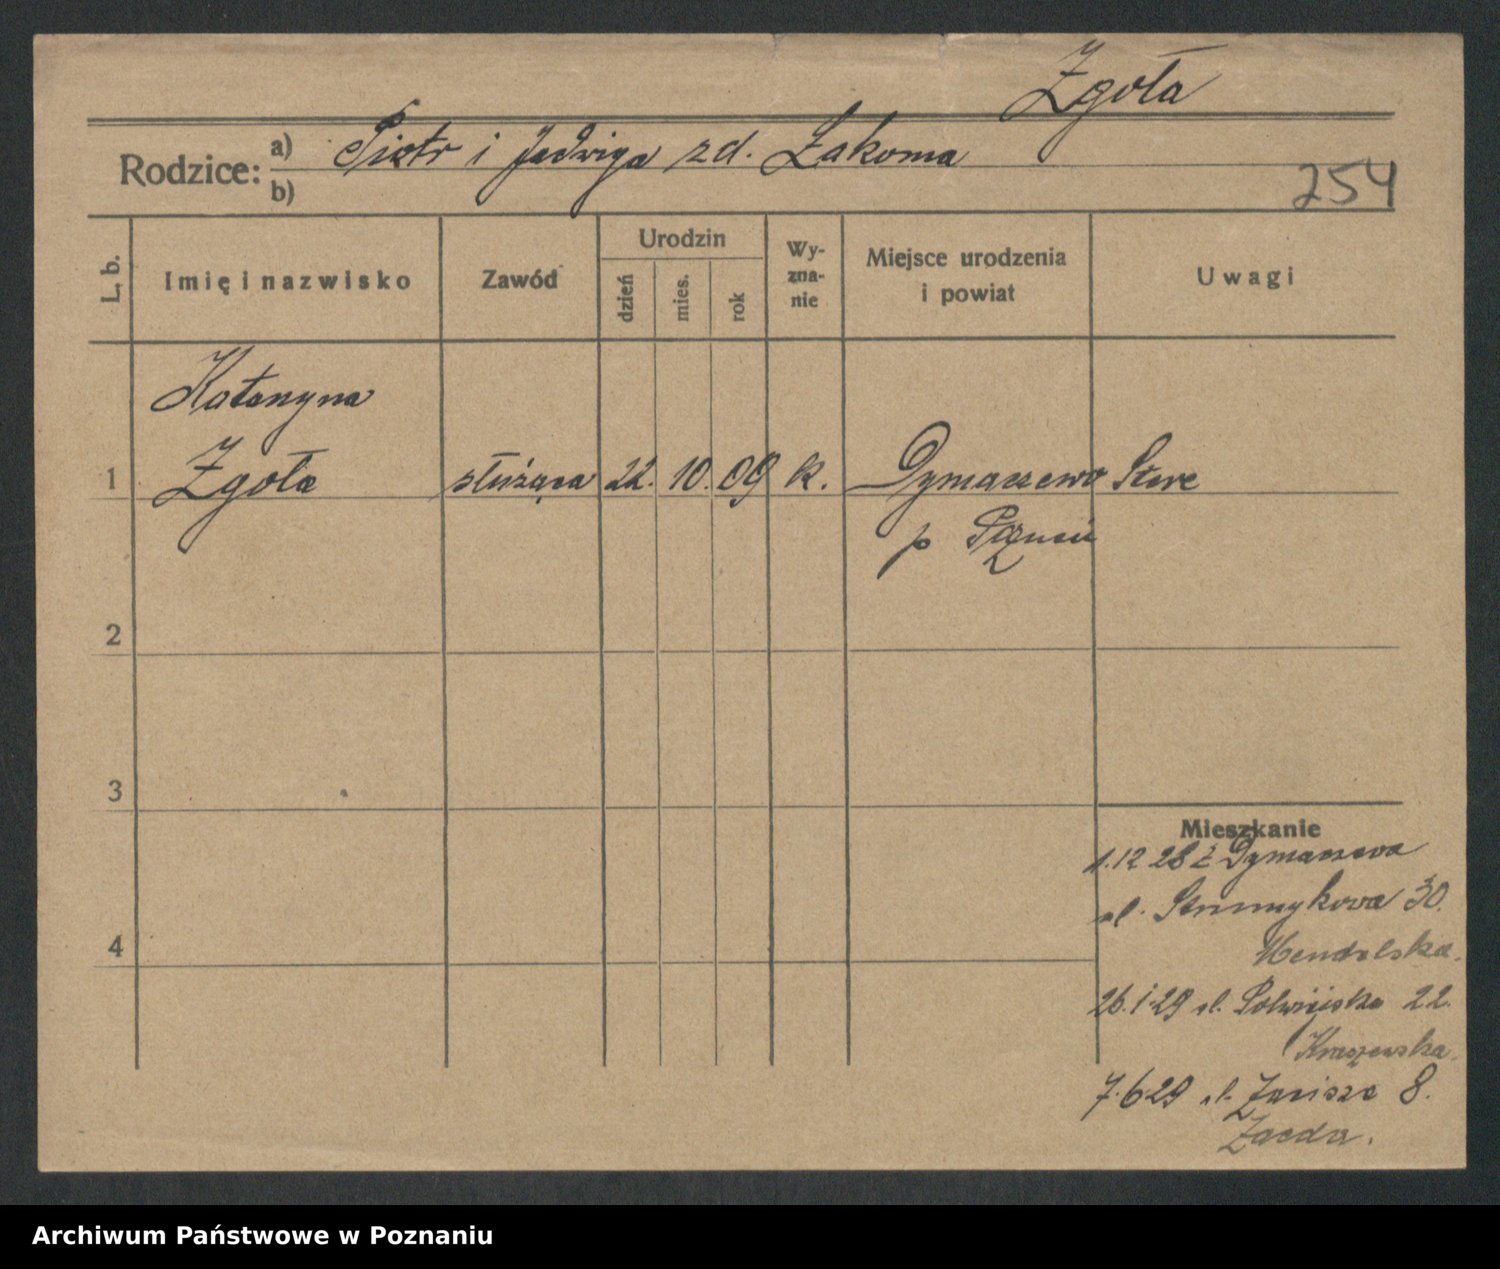 Zgoła
Rodzice: a) Piotr i Jadwiga zd. Łakoma
b)
254
L. b.
Imię i nazwisko
Zawód
Urodzin
dzień
mies.
rok
Wy-
zna-
nie
Miejsce urodzenia
i powiat
Uwagi
Katarzyna
1 Zgoła służąca 22. 10. 09 k. Dymaczewo Stare
p Poznań
2
3
4
Mieszkanie
1.12 28 z Dymaczewa
ul. Strumykowa 30.
26.1.29 ul. Polwiejska 22.
Kraszewska.
7.6 29 ul. Zacisze 8.
Archiwum Państwowe w Poznaniu